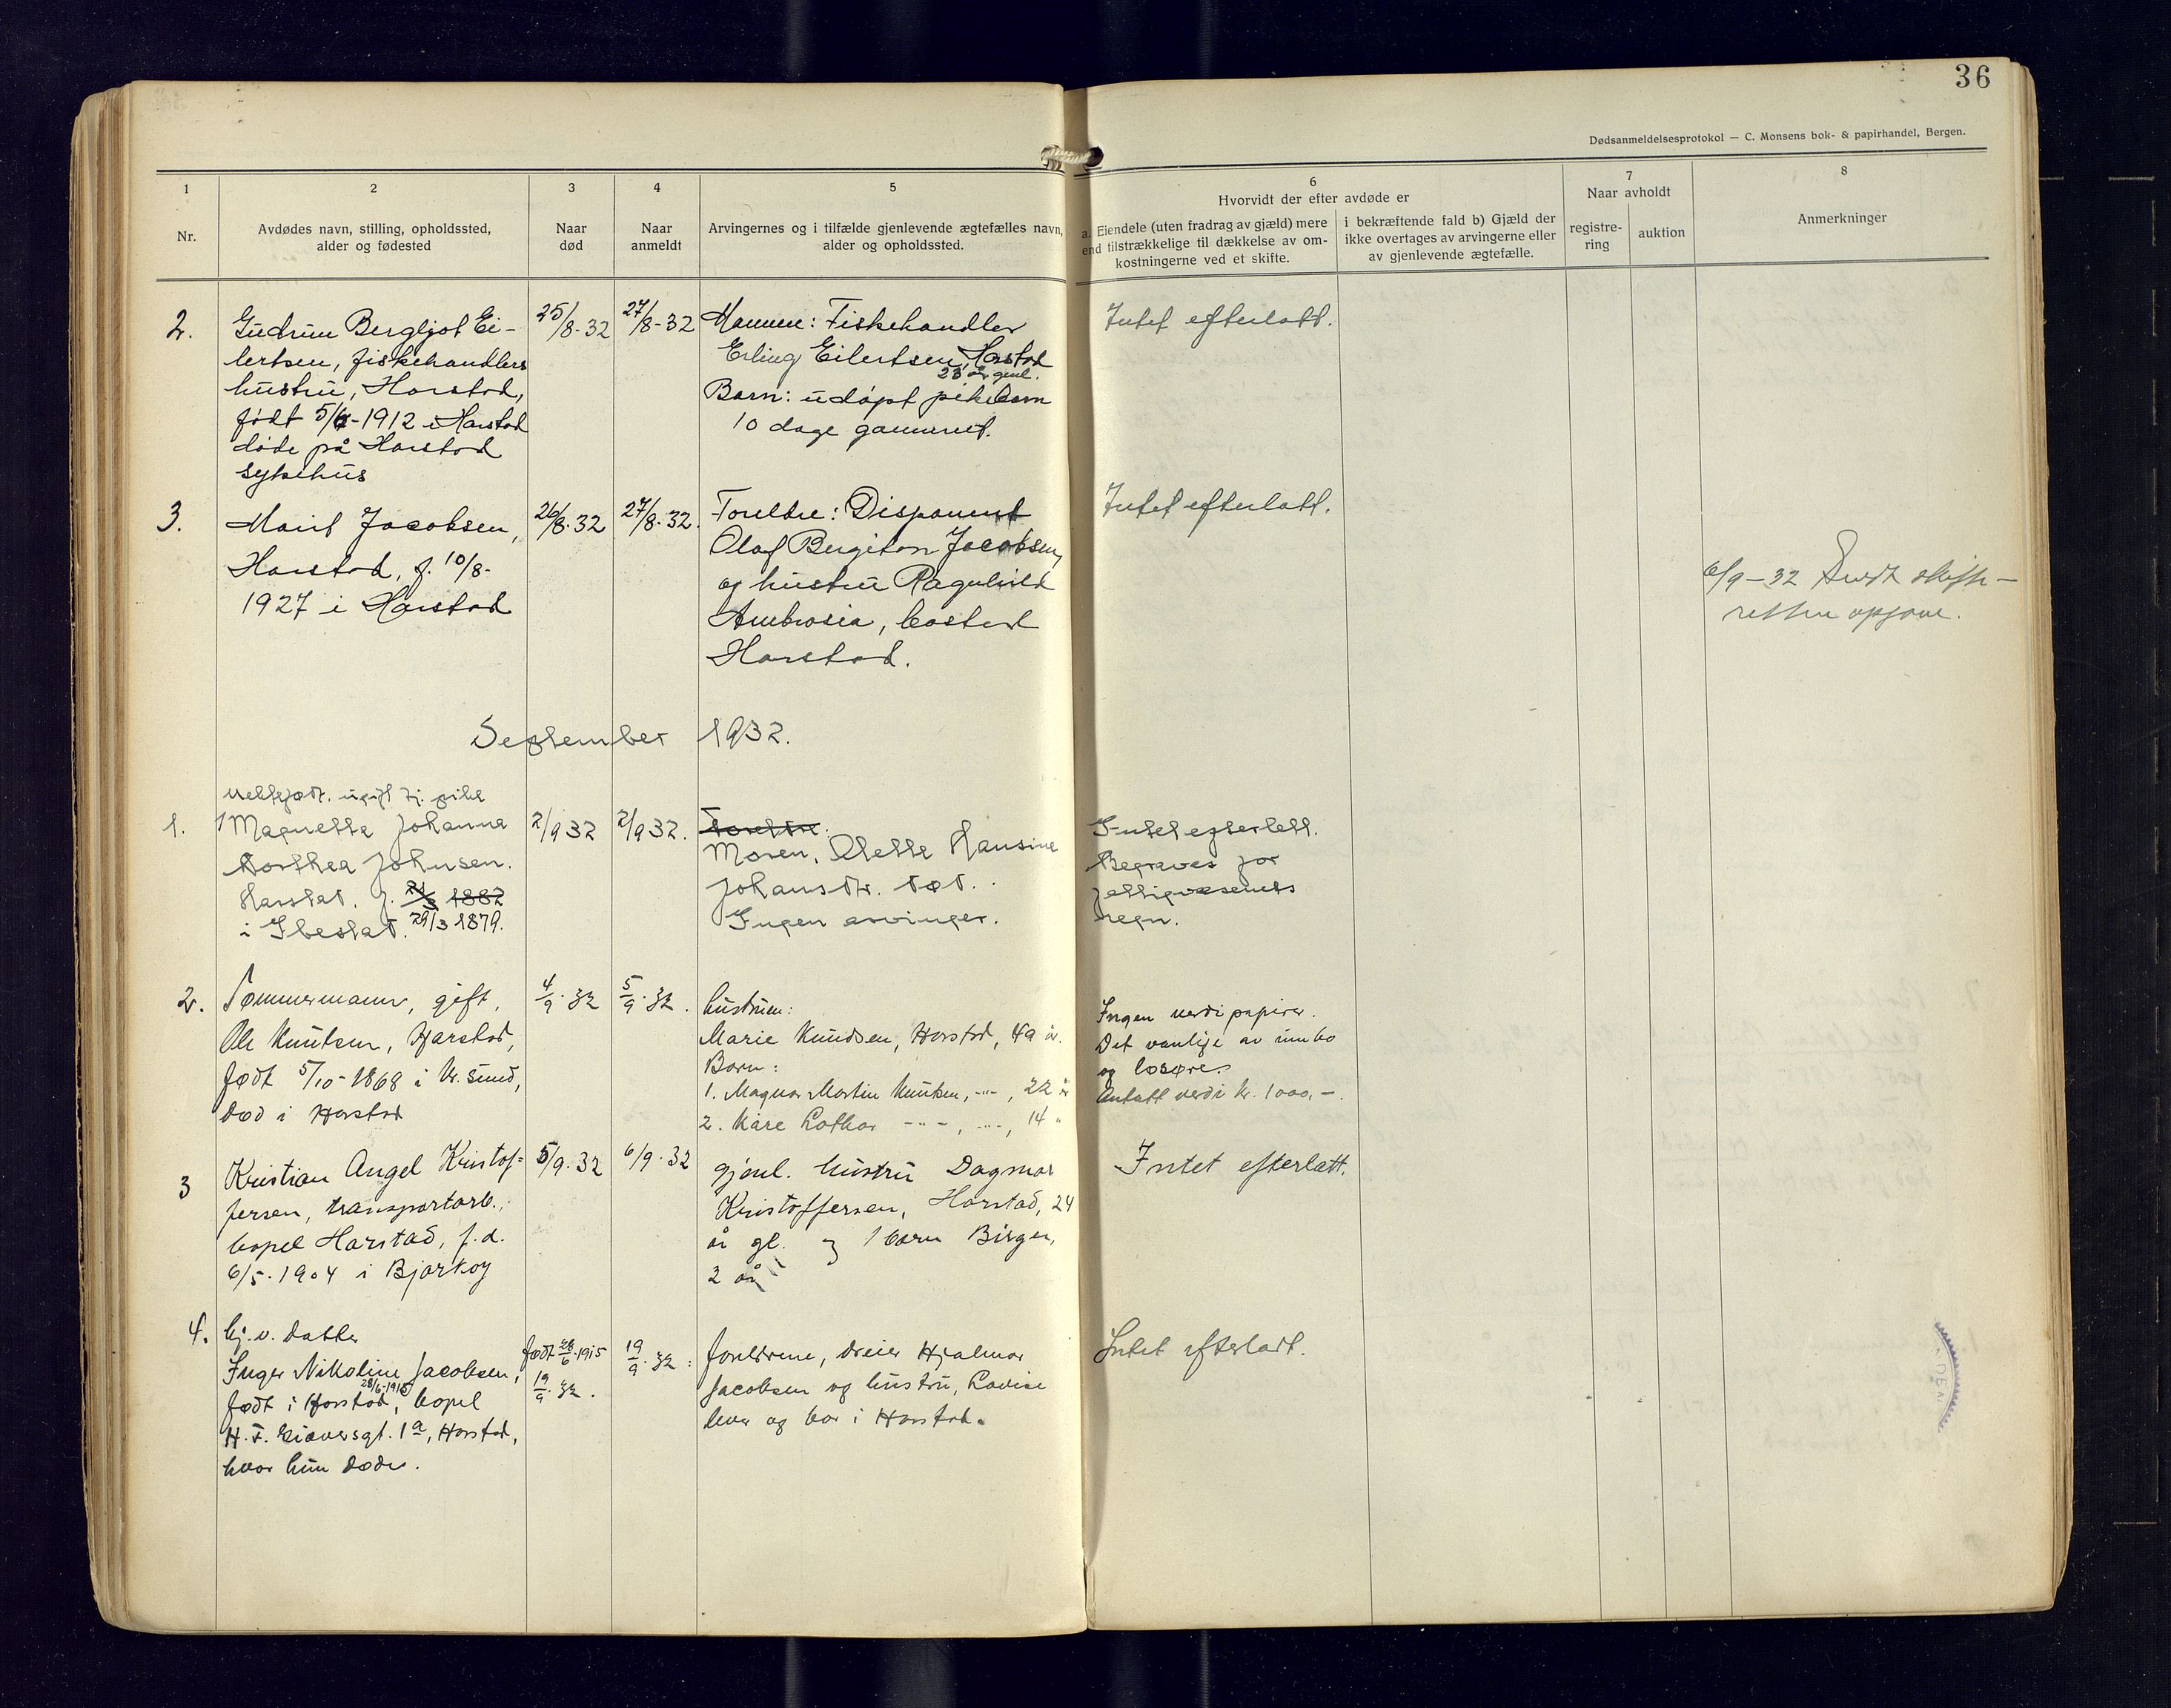 36
Dødsanmeldelsesprotokol — C. Monsens bok- & papirhandel, Bergen.
1
Nr.
2
Avdødes navn, stilling, opholdssted,
alder og fødested
3
Naar
død
4
Naar
anmeldt
5
Arvingernes og i tilfælde gjenlevende ægtefælles navn,
alder og opholdssted.
6
Hvorvidt der efter avdøde er
a. Eiendele (uten fradrag av gjæld) mere
end tilstrækkelige til dækkelse av om-
kostningerne ved et skifte.
i bekræftende fald b) Gjæld der
ikke overtages av arvingerne eller
av gjenlevende ægtefælle.
7
Naar avholdt
registre-
ring
auktion
8
Anmerkninger
2.
Gudrun Bergljot Ei-
lertsen, fiskehandlers
hustru, Harstad,
født 5/6-1912 i Harstad
døde på Harstad
sykehus
25/8-32
27/8-32
Mannen: Fiskehandler
Erling Eilertsen, Harstad
23 år gml.
Barn: udøpt pikebarn
10 dage gammelt.
Intet efterlatt.
3.
Marit Jacobsen,
Harstad, f. 10/8-
1927 i Harstad
26/8-32
27/8-32.
Foreldre: Disponent
Olaf Bergiton Jacobsen
og hustru Ragnhild
Ambrosia, bosted
Harstad.
Intet efterlatt.
6/9-32 Sendt skifte-
retten opgave.
September 1932.
1.
ugift tj. pike
Magnetta Johanna
Dorthea Johnsen.
Harstad. f. 1882
i Ibestad. 29/3 1879.
2/9 32
2/9 32.
Foreldre.
Moren, Alette Hansine
Johansdtr. død.
Ingen arvinger.
Intet efterlatt.
Begraves for
fattigvesenets
regn.
2.
Tømmermann, gift,
Ole Knutsen, Harstad,
født 5/10-1868 i Kr. sund,
død i Harstad
4/9.32
5/9.32.
hustruen:
Marie Knudsen, Harstad, 49 år.
Barn:
1. Magnar Martin Knutsen, -"-, 22 år
2. Kåre Lothar -"-, -"-, 14 "
Ingen verdipapirer.
Det vanlige av innbo
og løsøre.
Antatt verdi kr. 1000,-.
3
Kristian Angel Kristof=
fersen, transportarb.,
bopel Harstad, f.d.
6/5.1904 i Bjarkøy
5/9.32
6/9.32
gjenl. hustru Dagmar
Kristoffersen, Harstad, 24
år gl. og 1 barn Birger,
2 år
Intet efterlatt.
4.
hj. v. datter
Inger Nikoline Jacobsen,
født i Harstad 28/6-1915, bopel
H. F. Giæversgt. 1a, Harstad,
hvor hun døde.
født 28/6.1915
19/9.32.
19/9.32.
foreldrene, dreier Hjalmar
Jacobsen og hustru, Lovise
lever og bor i Harstad.
Intet efterladt.